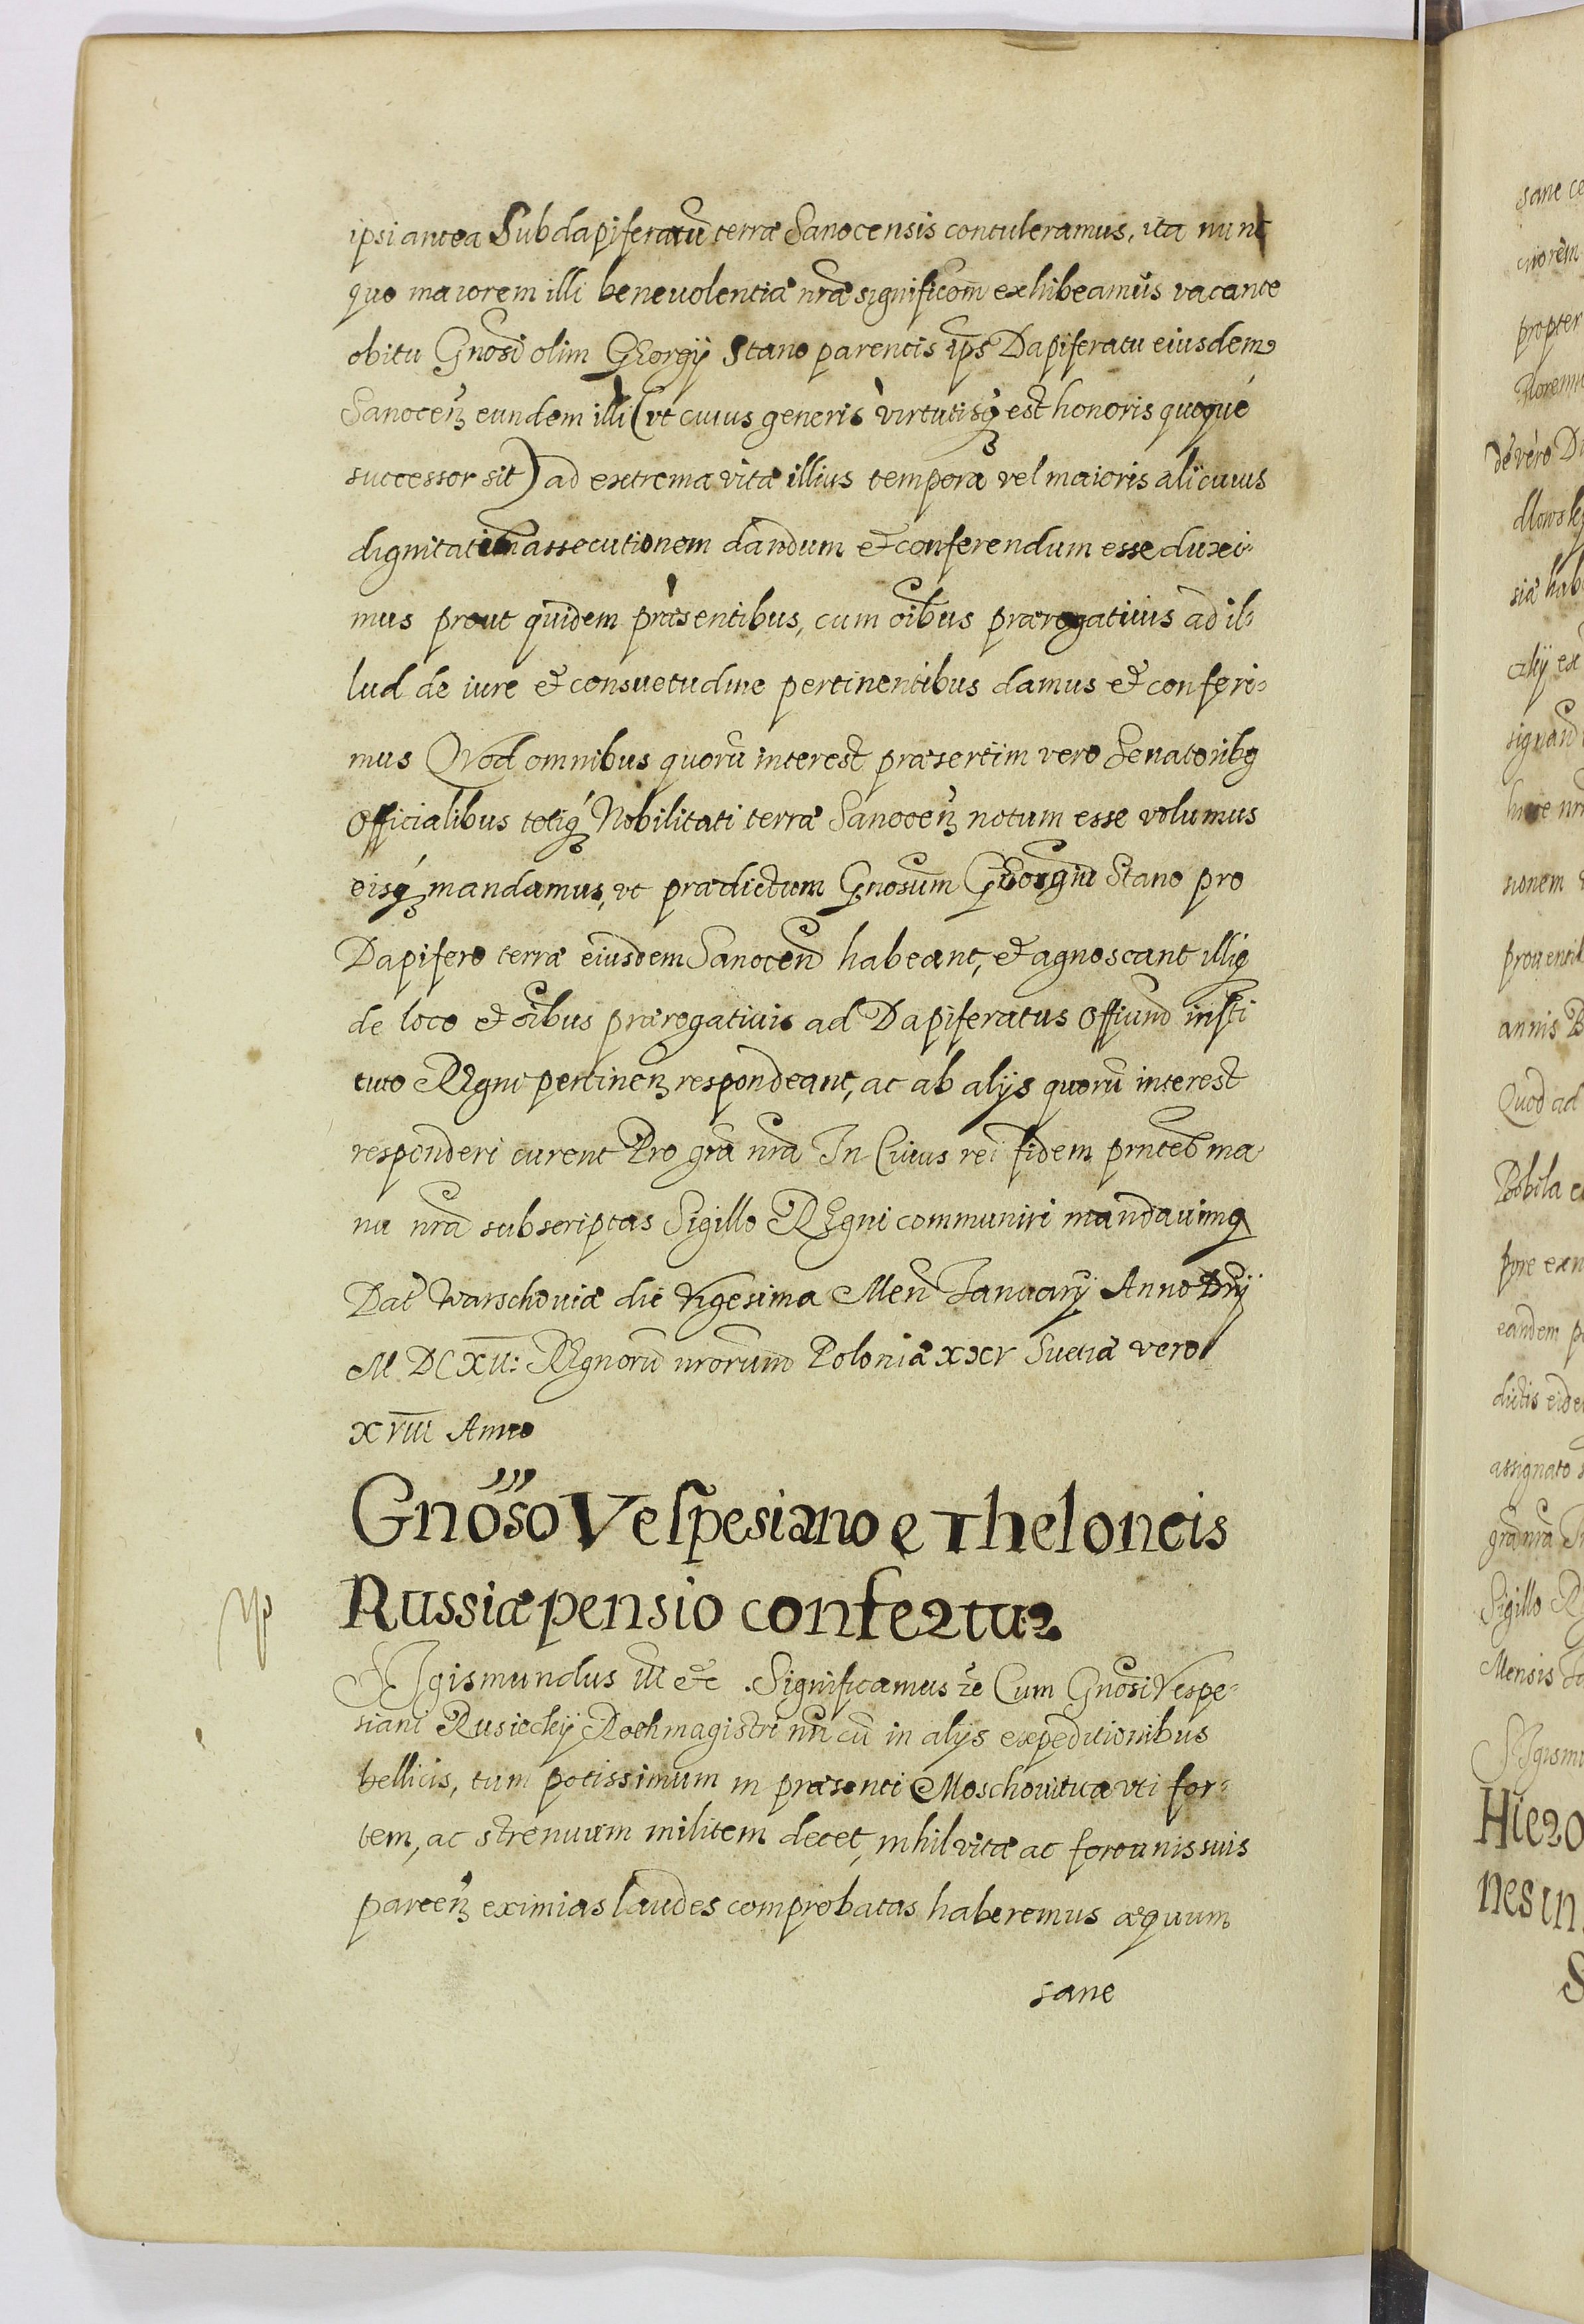 ipsi antea Subdapiferatū terræ Sanocensis contuleramus, ita nunc
quo maiorem illi beneuolentiæ nr̃æ significõm exhibeamus vacante
obitu Gnosi olim GEorgÿ Stano parentis ips Dapiferatu eiusdem
Sanoceñ eundem illi (vt cuius generis virtutisq3 est honoris quoque
successor sit) ad extrema vitæ illius tempora vel maioris alicuius
dignitatis assecutionem dandum et conferendum esse duxi-
mus prout quidem præsentibus, cum oibus prærogatiuis ad il-
lud de iure et consuetudine pertinentibus damus et conferi-
mus QVod omnibus quorū interest præsertim vero Senatorib9
Officialibus totiq3 Nobilitati terræ Sanoceñ notum esse volumus
eisq3 mandamus, vt prædictum Gnosum GEorgiū Stano pro
Dapifero terræ eiusdem Sanoceñ habeant, et agnoscant illiq3
de loco et oibus prærogatiuis ad Dapiferatus Offium insti
tuto REgni pertineñ respondeant, ac ab alÿs quorū interest
responderi curent Pro grã nrã In Cuius rei fidem prntes ma
nu nrã subscriptas Sigillo REgni communiri mandauim9
Dat Warschouiæ die vigesima Men Januarÿ Anno Dnÿ
M DCXII: REgnorū nrorum Poloniæ XXV Suetiæ vero
XVIII Anno
Gnõso Vespesiano e Theloneis
Russiæ pensio confertur
SIgismundus III etc. Significamus ze Cum Gnõsi Vespe-
siani Rusieckÿ Rothmagistri nri cū in alÿs expeditionibus
bellicis, tum potissimum in præsenti Moschouitica vti for-
tem, ac strenuum militem decet, nihil vitæ ac fortunis suis
parceñ eximias laudes comprobatas haberemus æquum
sane